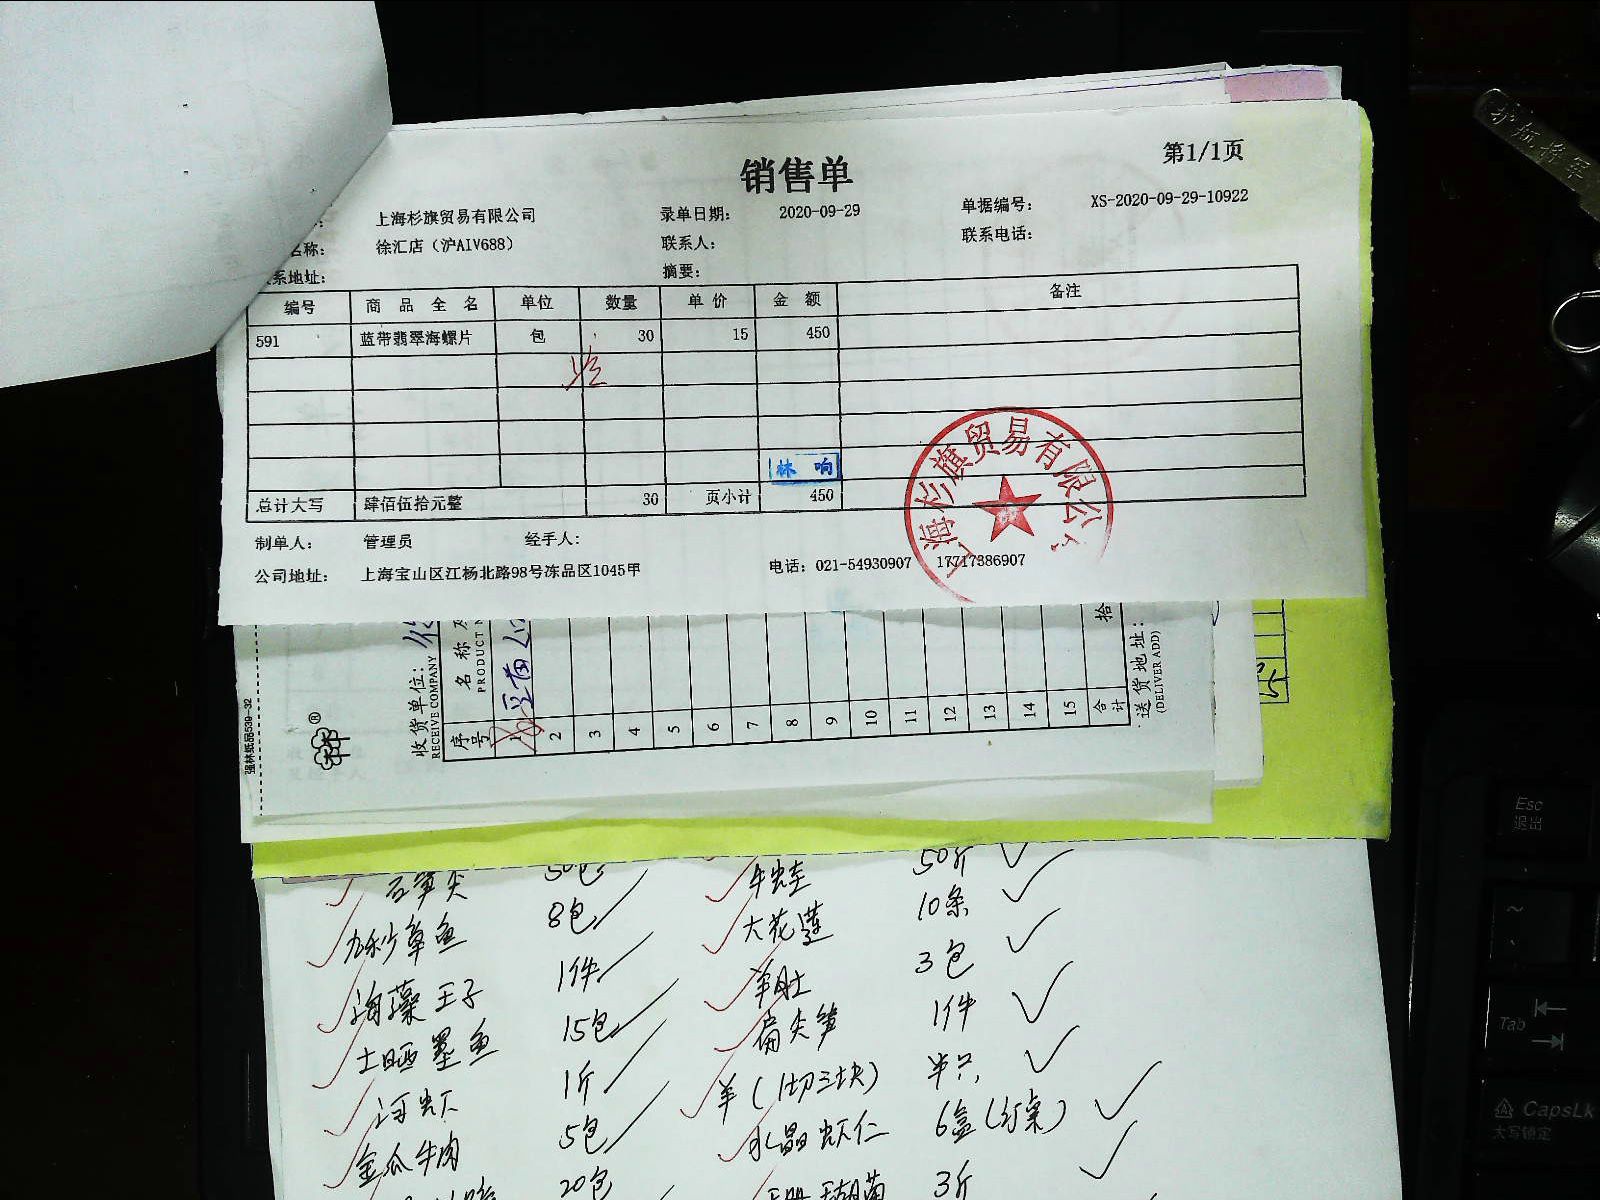 第1/1页
销售单
上海杉旗贸易有限公司 录单日期: 2020-09-29 单据编号: XS-2020-09-29-10922
名称: 徐汇店（沪AIV688） 联系人: 联系电话:
系地址: 摘要:
编号 商品全名 单位 数量 单价 金额 备注
591 蓝带翡翠海螺片 包 30 15 450
林响
总计大写 肆佰伍拾元整 30 页小计 450
制单人: 管理员 经手人:
公司地址: 上海宝山区江杨北路98号冻品区1045甲 电话: 021-54930907 17717386907
上海杉旗贸易有限公
强林纸品539-32
®
收货单位:
RECEIVE COMPANY
序号 名称
PRODUCT
1 豆苗
2
3
4
5
6
7
8
9
10
11
12
13
14
15
合计 拾
送货地址:
(DELIVER ADD)
石笋尖 50包 牛蛙 50斤
八秒章鱼 8包 大花莲 10条
海藻王子 1件 羊肚 3包
土晒墨鱼 15包 扁尖笋 1件
河虾 1斤 羊(1切三块) 半只
金瓜牛肉 5包 水晶虾仁 6盒(订桌)
20包 珊瑚菌 3斤
护航将军
Esc
退出
~
Tab
CapsLk
大写锁定